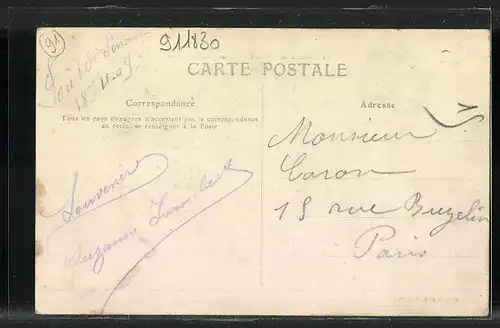 91
911830
18-11-09
CARTE POSTALE
Correspondance
Tous les pays étrangers n'acceptent pas la correspondance
au recto, se renseigner à la Poste
Adresse
Monsieur
Caron
15 rue Buzelin
Paris
Souvenir
Suzanne